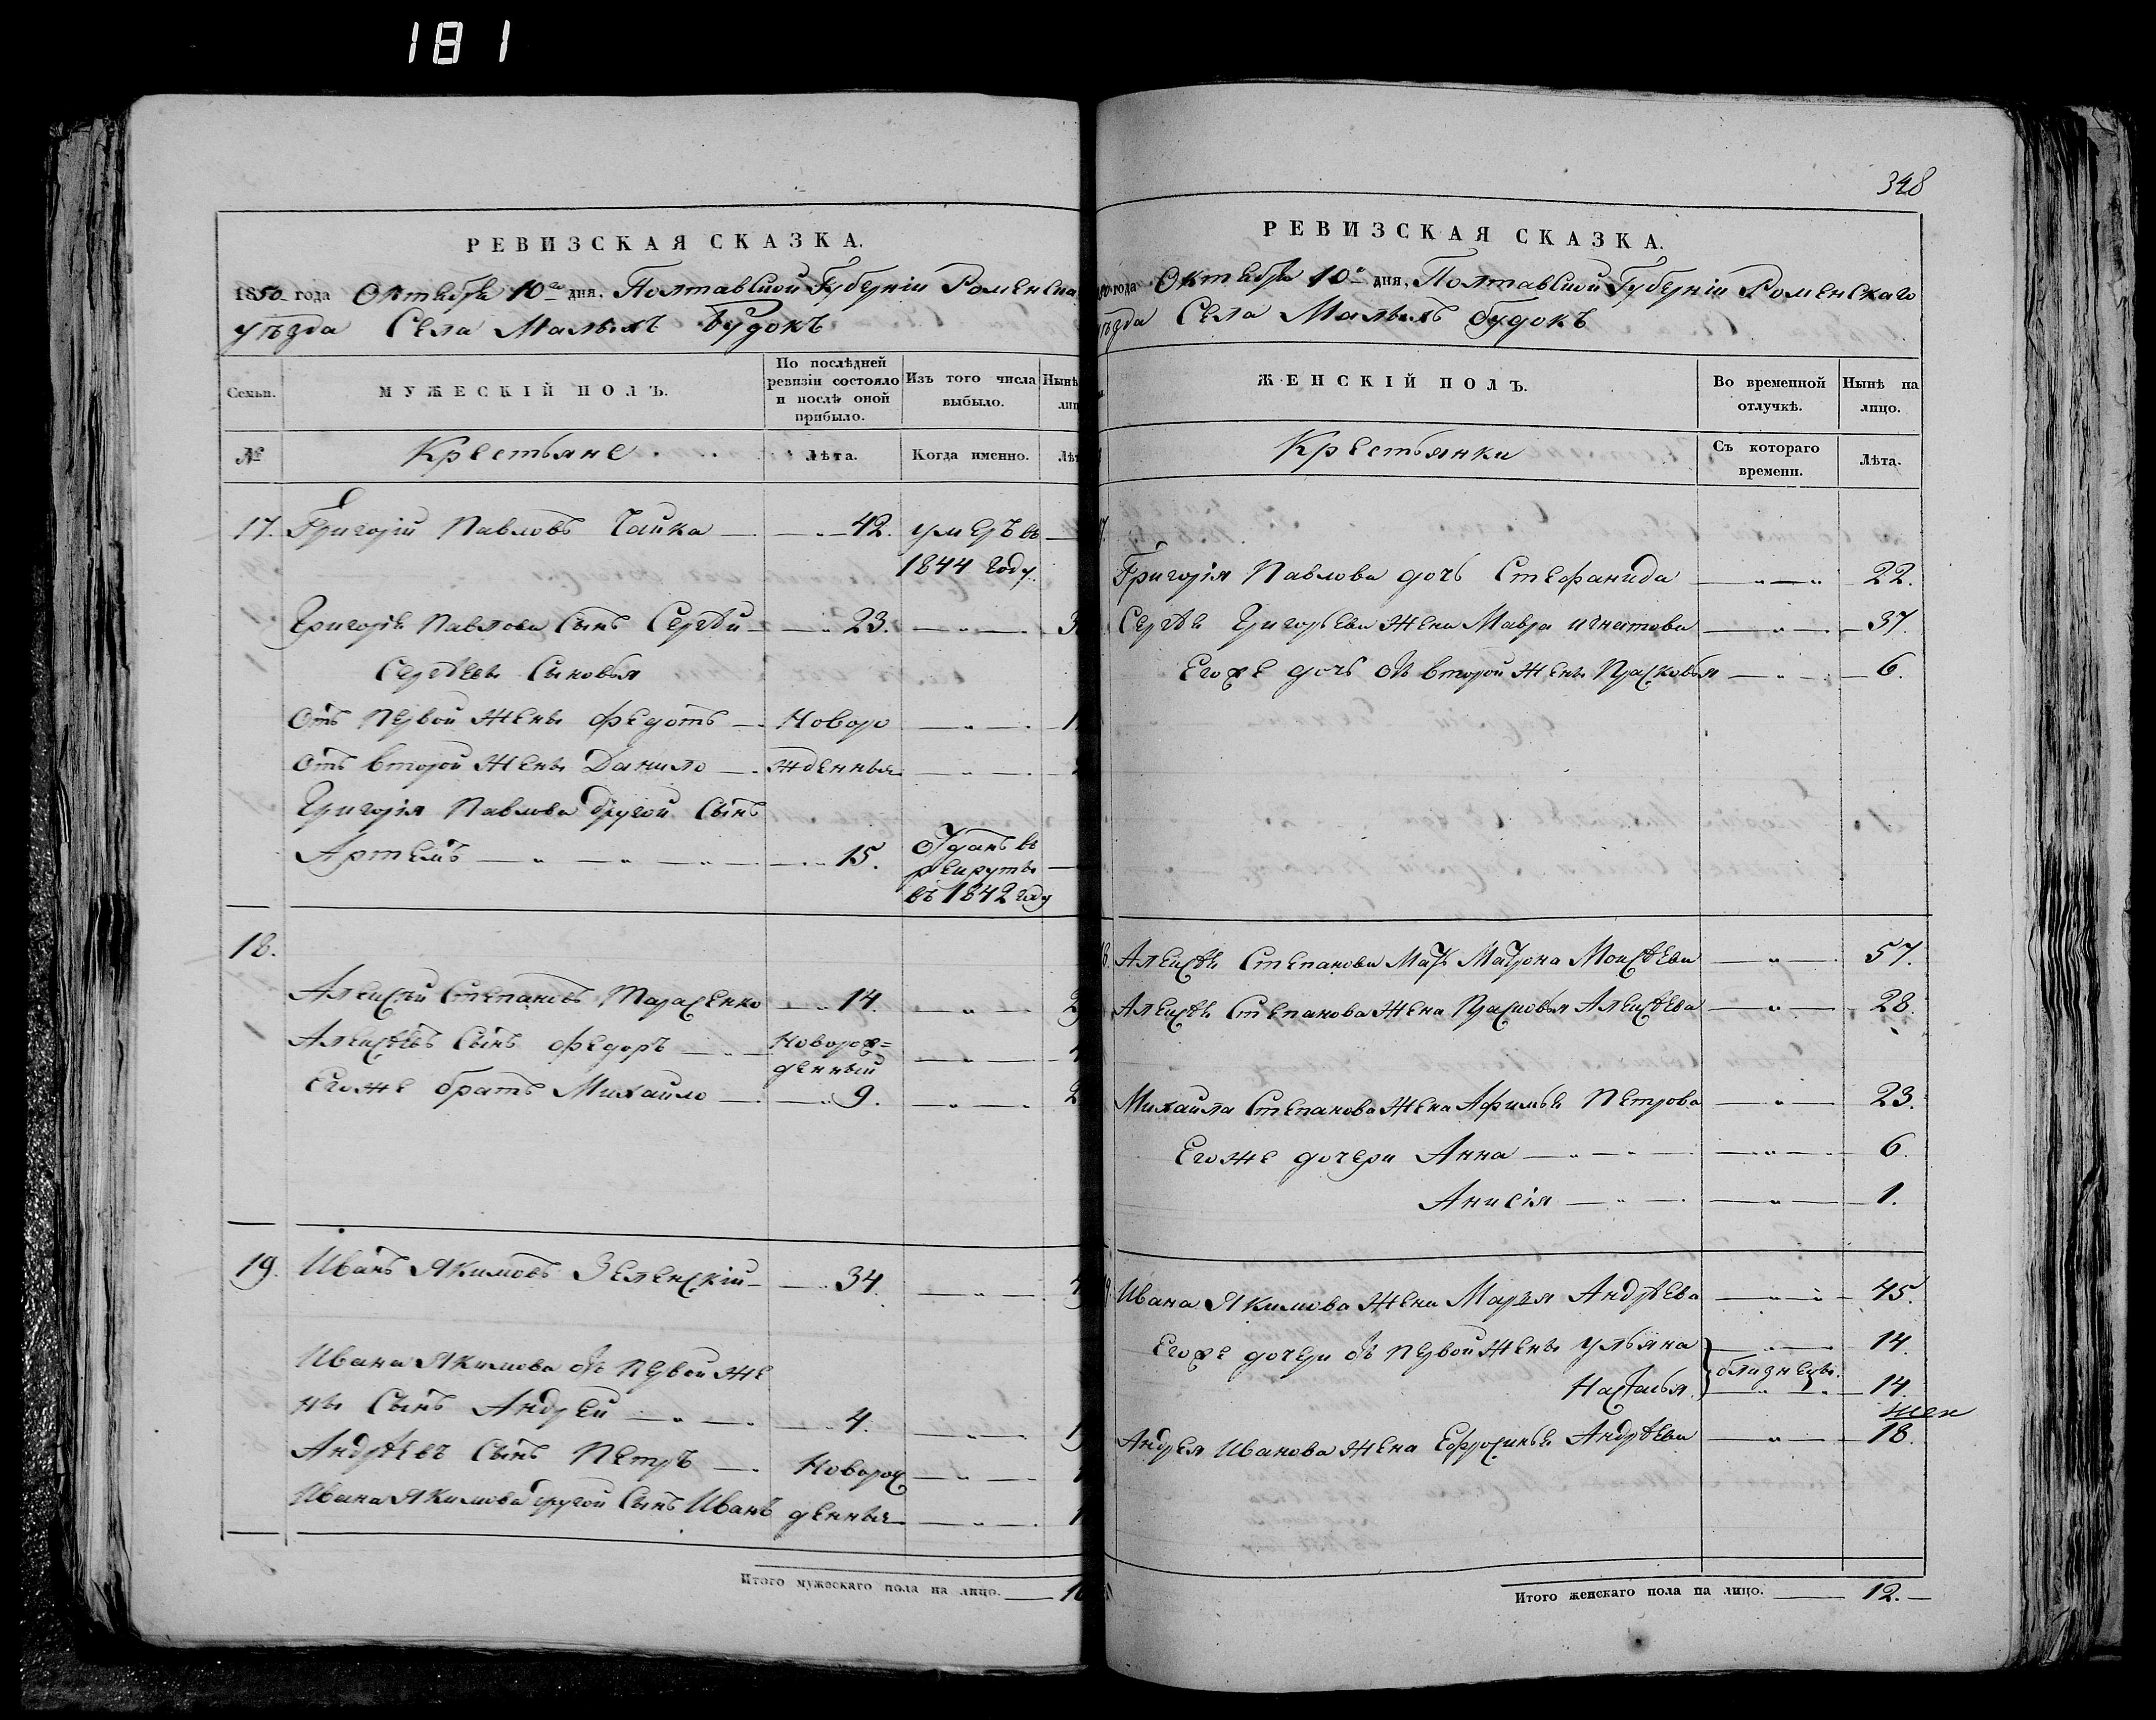 181
РЕВИЗСКАЯ СКАЗКА.
1850 года Октября 10го дня, Полтавской Губерніи Роменска
уѣзда Села Малыхъ Будокъ
Семьи.
МУЖЕСКІЙ ПОЛЪ.
По послѣдней
ревизіи состояло
и послѣ оной
прибыло.
Изъ того числа
выбыло.
Нынѣ
лиц
№
Крестьяне
Лѣта.
Когда именно.
Лѣт
17. Григорій Павловъ Чайка 42. умеръ въ
1844 году.
Григорія Павлова Сынъ Сергѣй 23. 3
Сергѣевы Сыновья
Отъ первой жены Федотъ Новоро 1
Отъ второй жены Данило жденныя
Григорія Павлова другой Сынъ
Артемъ 15. Отданъ въ
рекруты
въ 1842 году
18.
Алексѣй Степановъ Тарасенко 14. 2
Алексѣевъ Сынъ Федоръ Новорож=
денный
Егоже братъ Михайло 9. 2
19. Иванъ Якимовъ Зеленскій 34. 4
Ивана Якимова отъ первой же
ны Сынъ Андрей 4. 1
Андрѣевъ Сынъ Петръ Новорож
Ивана Якимова другой Сынъ Иванъ денныя 1
Итого мужескаго пола на лицо. 10
348
РЕВИЗСКАЯ СКАЗКА.
года Октября 10го дня, Полтавской Губерніи Роменскаго
уѣзда Села Малыхъ Будокъ
ЖЕНСКІЙ ПОЛЪ.
Во временной
отлучкѣ.
Нынѣ на
лицо.
Крестьянки
Съ котораго
времени.
Лѣта.
7.
Григорія Павлова дочь Стефанида 22.
Сергѣя Григорьева жена Мавра Игнатова 37.
Егоже дочь отъ второй жены Прасковья 6.
8. Алексѣя Степанова Мать Матрона Моисѣева 57.
Алексѣя Степанова жена Прасковья Алексѣева 28.
Михайла Степанова жена Афимья Петрова 23.
Егоже дочери Анна 6.
Анисія 1.
9. Ивана Якимова жена Марья Андрѣева 45.
Егоже дочери отъ первой жены Ульяна 14.
близнецы.
Настасья 14.
Андрея Иванова жена Ефросинья Андрѣева 18.
Итого женскаго пола на лицо. 12.